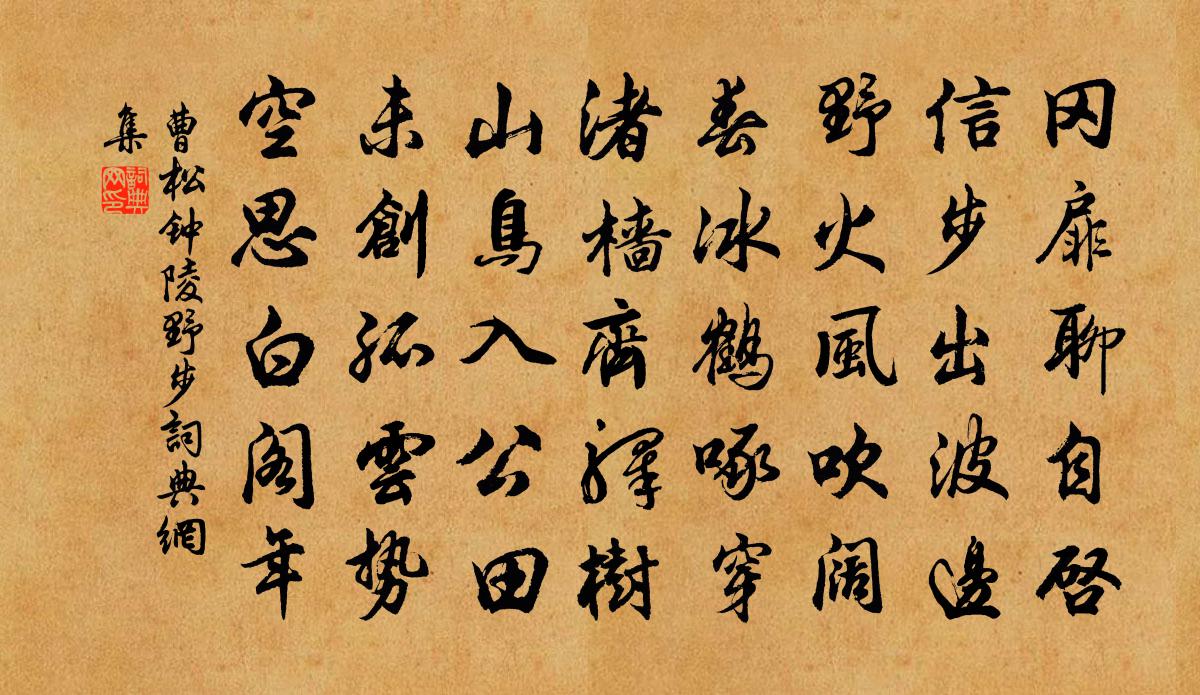 冈扉聊自启
信步出波邊
野火風吹阔
春冰鶴啄穿
渚檣齊驛樹
山鳥入公田
未創孤雲勢
空思白阁年
曹松钟陵野步詞典網
集
詞典
网印